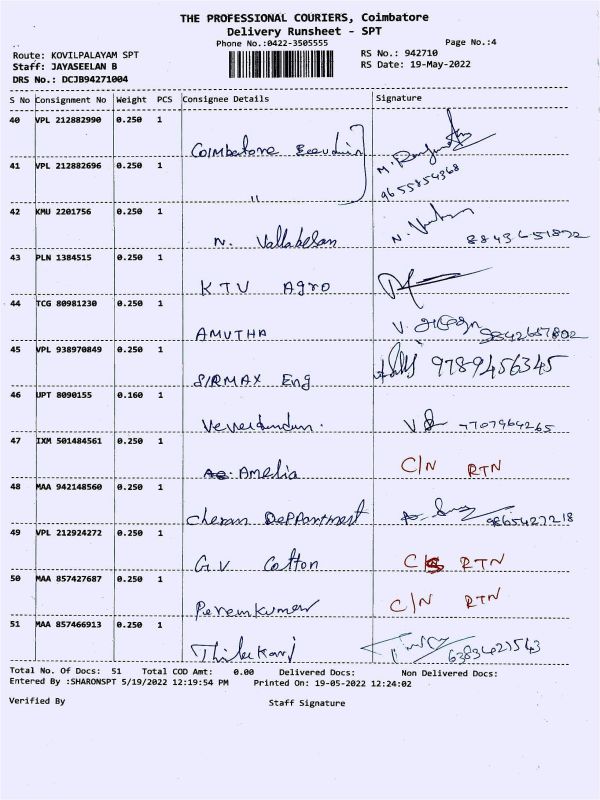 THE PROFESSIONAL COURIERS, Coimbatore
Delivery Runsheet - SPT
Phone No.:0422-3505555 Page No.:4
Route: KOVILPALAYAM SPT RS No.: 942710
Staff: JAYASEELAN B RS Date: 19-May-2022
DRS No.: DCJB94271004
S No Consignment No Weight PCS Consignee Details Signature
40 VPL 212882990 0.250 1
Coimbatore
41 VPL 212882696 0.250 1
" 9655854368
42 KMU 2201756 0.250 1
N. Vallabelan N.
43 PLN 1384515 0.250 1
KTV Agro
44 TCG 80981230 0.250 1
AMUTHA V. 9842657802
45 VPL 938970849 0.250 1
SIRMAX Eng 9789456345
46 UPT 8090155 0.160 1
7707964265
47 IXM 501484561 0.250 1
Amelia C/N RTN
48 MAA 942148560 0.250 1
Cheran Deppartment 9865427218
49 VPL 212924272 0.250 1
G.V Cotton RTN
50 MAA 857427687 0.250 1
Peremkumar C/N RTN
51 MAA 857466913 0.250 1
6383421543
Total No. Of Docs: 51 Total COD Amt: 0.00 Delivered Docs: Non Delivered Docs:
Entered By :SHARONSPT 5/19/2022 12:19:54 PM Printed On: 19-05-2022 12:24:02
Verified By Staff Signature